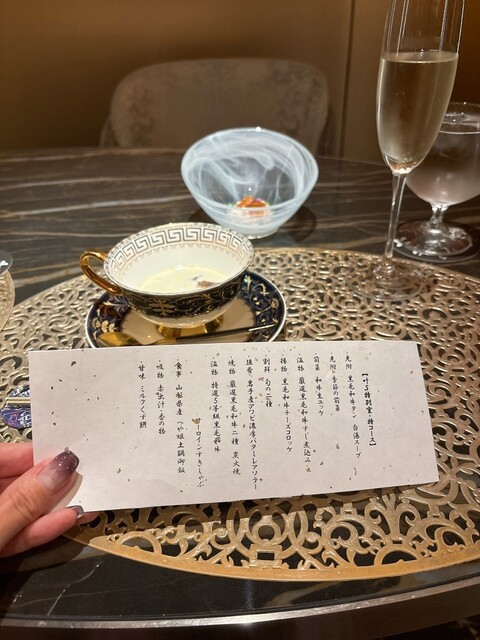 【叶5特別室・特コース】
先附 黒毛和牛タン 白湯スープ
先附 季節の前菜
前菜 和牛生ユッケ
温物 厳選黒毛和牛すじ煮込み
揚物 黒毛和牛チーズコロッケ
割鮮 旬の二種
強肴 岩手産アワビ濃厚バターレアソテー
焼物 厳選黒毛和牛二種 炭火焼
温物 特選5等級黒毛和牛
ーロインすきしゃぶ
食事 山形県産 つや姫土鍋御飯
吸物 赤出汁・香の物
甘味 ミルクくず餅